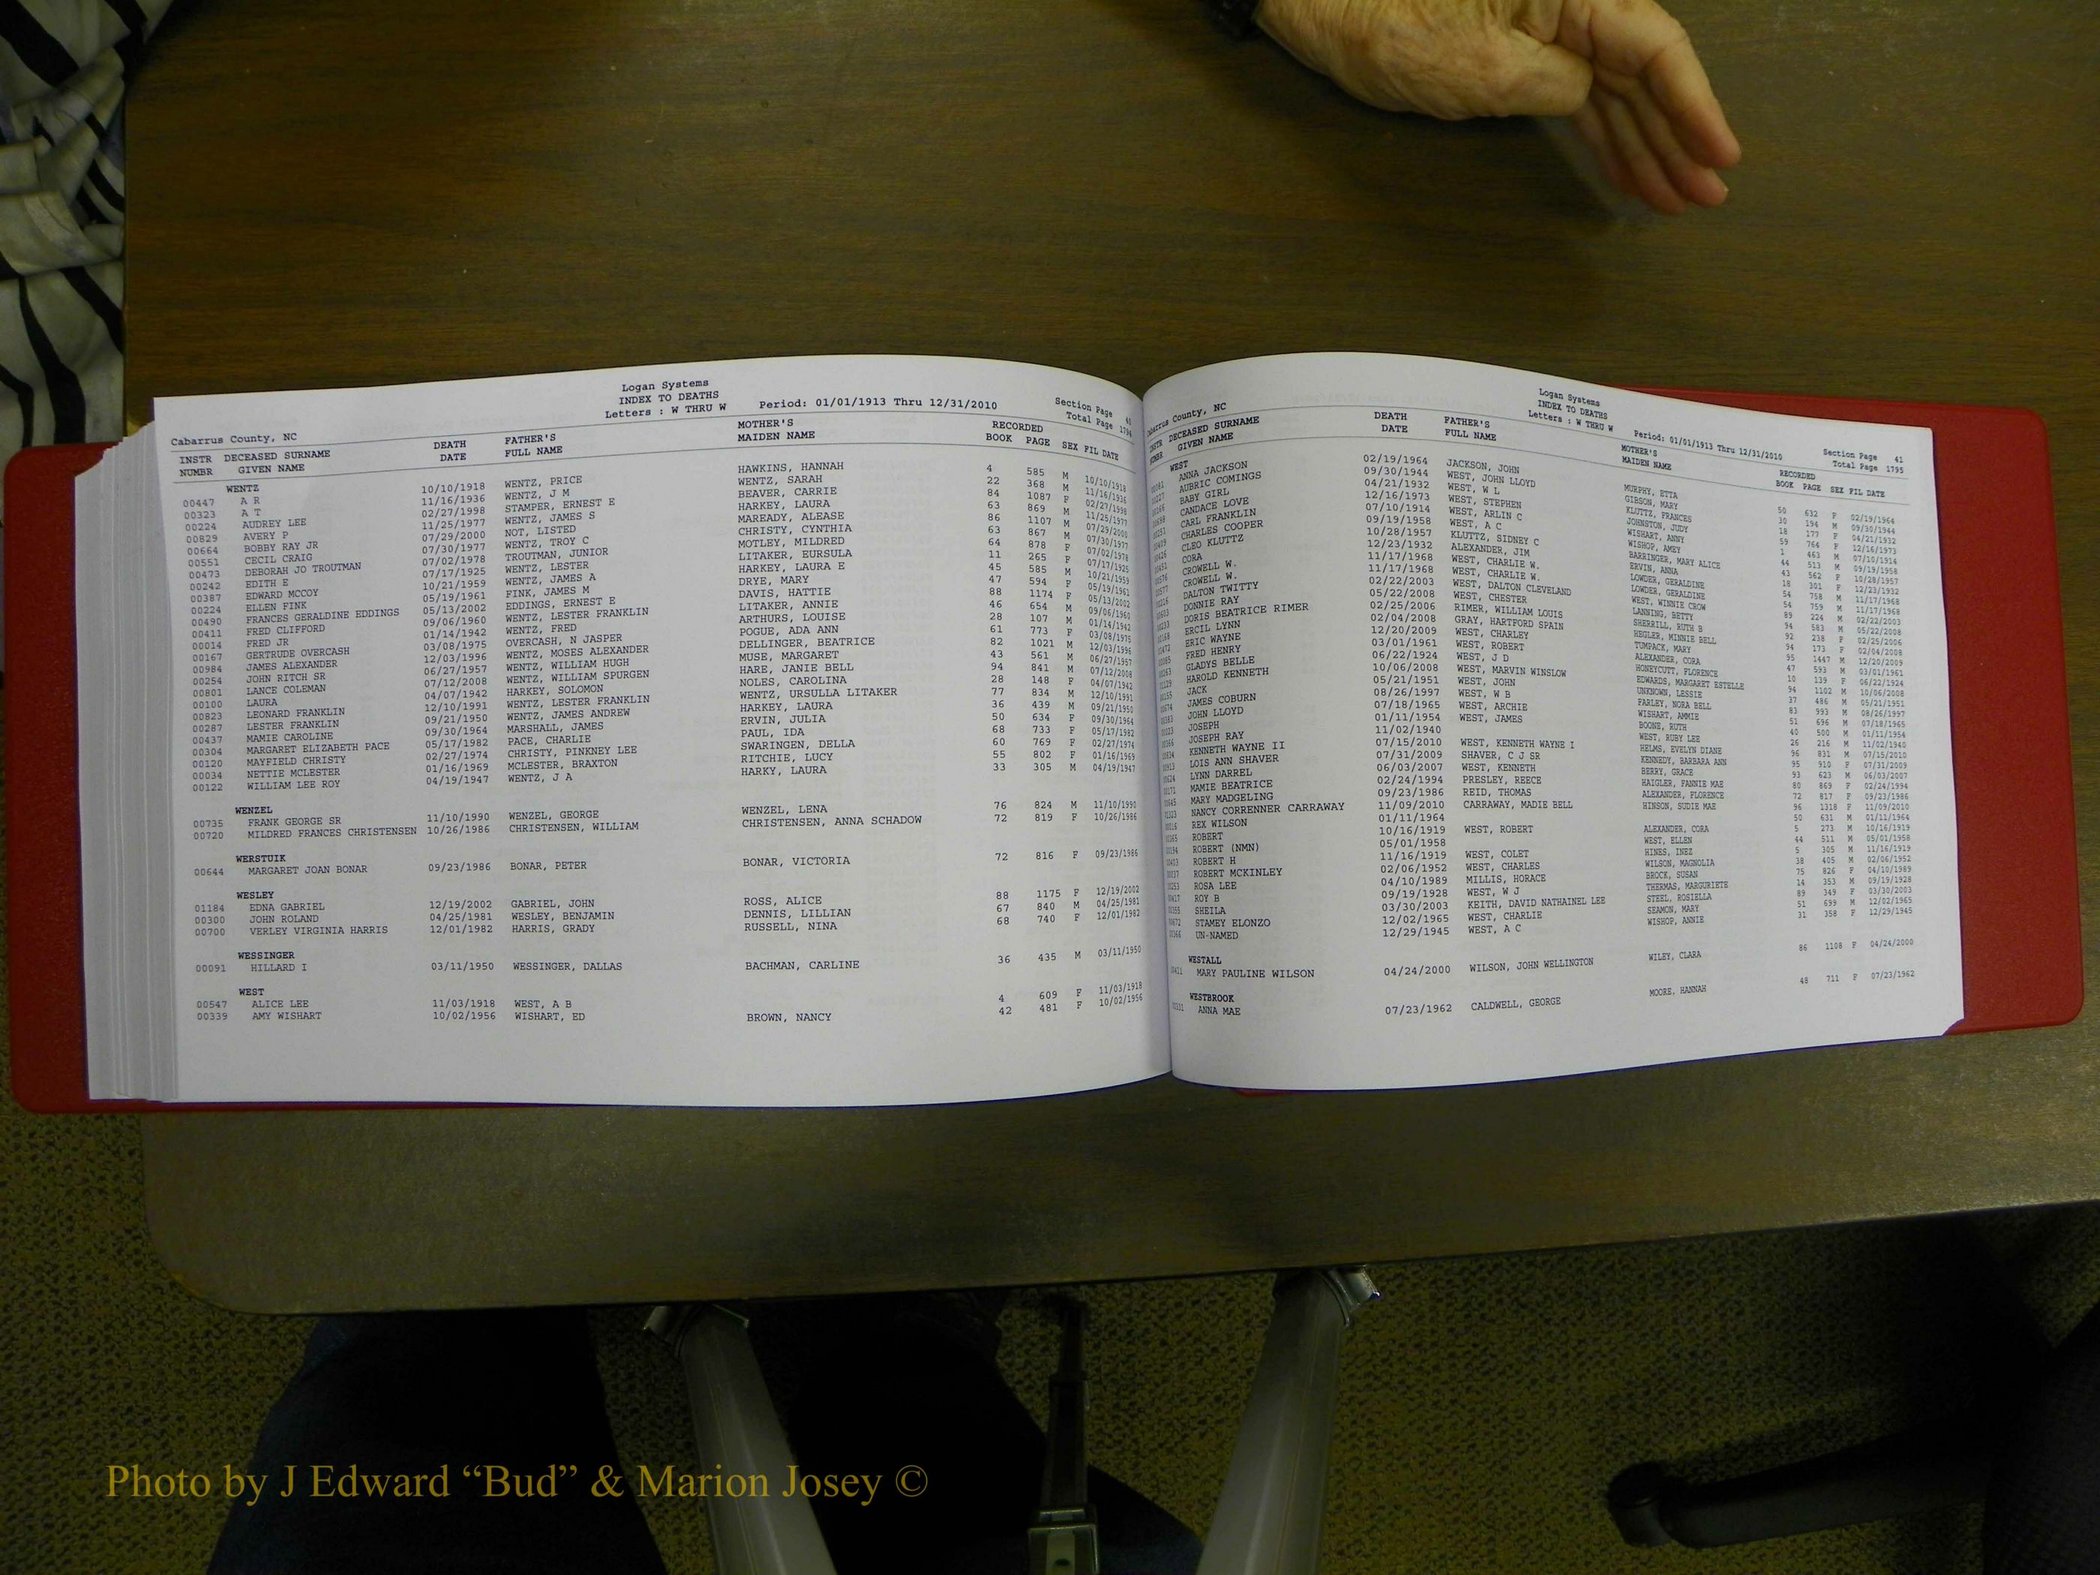 Logan Systems
INDEX TO DEATHS
Letters : W THRU W Period: 01/01/1913 Thru 12/31/2010
Section Page 40
Total Page 1794
Cabarrus County, NC
INSTR DECEASED SURNAME DEATH FATHER'S MOTHER'S RECORDED
NUMBR GIVEN NAME DATE FULL NAME MAIDEN NAME BOOK PAGE SEX FIL DATE
WENTZ
00447 A R 10/10/1918 WENTZ, PRICE HAWKINS, HANNAH 4 585 M 10/10/1918
00323 A T 11/16/1936 WENTZ, J M WENTZ, SARAH 22 368 M 11/16/1936
00224 AUDREY LEE 02/27/1998 STAMPER, ERNEST E BEAVER, CARRIE 84 1087 F 02/27/1998
00829 AVERY P 11/25/1977 WENTZ, JAMES S HARKEY, LAURA 63 869 M 11/25/1977
00664 BOBBY RAY JR 07/29/2000 NOT, LISTED MAREADY, ALEASE 86 1107 M 07/29/2000
00551 CECIL CRAIG 07/30/1977 WENTZ, TROY C CHRISTY, CYNTHIA 63 867 M 07/30/1977
00473 DEBORAH JO TROUTMAN 07/02/1978 TROUTMAN, JUNIOR MOTLEY, MILDRED 64 878 F 07/02/1978
00242 EDITH E 07/17/1925 WENTZ, LESTER LITAKER, EURSULA 11 265 F 07/17/1925
00387 EDWARD MCCOY 10/21/1959 WENTZ, JAMES A HARKEY, LAURA E 45 585 M 10/21/1959
00224 ELLEN FINK 05/19/1961 FINK, JAMES M DRYE, MARY 47 594 F 05/19/1961
00490 FRANCES GERALDINE EDDINGS 05/13/2002 EDDINGS, ERNEST E DAVIS, HATTIE 88 1174 F 05/13/2002
00411 FRED CLIFFORD 09/06/1960 WENTZ, LESTER FRANKLIN LITAKER, ANNIE 46 654 M 09/06/1960
00014 FRED JR 01/14/1942 WENTZ, FRED ARTHURS, LOUISE 28 107 M 01/14/1942
00167 GERTRUDE OVERCASH 03/08/1975 OVERCASH, N JASPER POGUE, ADA ANN 61 773 F 03/08/1975
00984 JAMES ALEXANDER 12/03/1996 WENTZ, MOSES ALEXANDER DELLINGER, BEATRICE 82 1021 M 12/03/1996
00254 JOHN RITCH SR 06/27/1957 WENTZ, WILLIAM HUGH MUSE, MARGARET 43 561 M 06/27/1957
00801 LANCE COLEMAN 07/12/2008 WENTZ, WILLIAM SPURGEN HARE, JANIE BELL 94 841 M 07/12/2008
00100 LAURA 04/07/1942 HARKEY, SOLOMON NOLES, CAROLINA 28 148 F 04/07/1942
00823 LEONARD FRANKLIN 12/10/1991 WENTZ, LESTER FRANKLIN WENTZ, URSULLA LITAKER 77 834 M 12/10/1991
00287 LESTER FRANKLIN 09/21/1950 WENTZ, JAMES ANDREW HARKEY, LAURA 36 439 M 09/21/1950
00437 MAMIE CAROLINE 09/30/1964 MARSHALL, JAMES ERVIN, JULIA 50 634 F 09/30/1964
00304 MARGARET ELIZABETH PACE 05/17/1982 PACE, CHARLIE PAUL, IDA 68 733 F 05/17/1982
00120 MAYFIELD CHRISTY 02/27/1974 CHRISTY, PINKNEY LEE SWARINGEN, DELLA 60 769 F 02/27/1974
00034 NETTIE MCLESTER 01/16/1969 MCLESTER, BRAXTON RITCHIE, LUCY 55 802 F 01/16/1969
00122 WILLIAM LEE ROY 04/19/1947 WENTZ, J A HARKY, LAURA 33 305 M 04/19/1947
WENZEL
00735 FRANK GEORGE SR 11/10/1990 WENZEL, GEORGE WENZEL, LENA 76 824 M 11/10/1990
00720 MILDRED FRANCES CHRISTENSEN 10/26/1986 CHRISTENSEN, WILLIAM CHRISTENSEN, ANNA SCHADOW 72 819 F 10/26/1986
WERSTUIK
00644 MARGARET JOAN BONAR 09/23/1986 BONAR, PETER BONAR, VICTORIA 72 816 F 09/23/1986
WESLEY
01184 EDNA GABRIEL 12/19/2002 GABRIEL, JOHN ROSS, ALICE 88 1175 F 12/19/2002
00300 JOHN ROLAND 04/25/1981 WESLEY, BENJAMIN DENNIS, LILLIAN 67 840 M 04/25/1981
00700 VERLEY VIRGINIA HARRIS 12/01/1982 HARRIS, GRADY RUSSELL, NINA 68 740 F 12/01/1982
WESSINGER
00091 HILLARD I 03/11/1950 WESSINGER, DALLAS BACHMAN, CARLINE 36 435 M 03/11/1950
WEST
00547 ALICE LEE 11/03/1918 WEST, A B 4 609 F 11/03/1918
00339 AMY WISHART 10/02/1956 WISHART, ED BROWN, NANCY 42 481 F 10/02/1956
Logan Systems
INDEX TO DEATHS
Letters : W THRU W Period: 01/01/1913 Thru 12/31/2010
Section Page 41
Total Page 1795
Cabarrus County, NC
INSTR DECEASED SURNAME DEATH FATHER'S MOTHER'S RECORDED
NUMBR GIVEN NAME DATE FULL NAME MAIDEN NAME BOOK PAGE SEX FIL DATE
WEST
ANNA JACKSON 02/19/1964 JACKSON, JOHN MURPHY, ETTA 50 632 F 02/19/1964
AUBRIC COMINGS 09/30/1944 WEST, JOHN LLOYD GIBSON, MARY 30 194 M 09/30/1944
BABY GIRL 04/21/1932 WEST, W L KLUTTZ, FRANCES 18 177 F 04/21/1932
CANDACE LOVE 12/16/1973 WEST, STEPHEN JOHNSTON, JUDY 59 764 F 12/16/1973
CARL FRANKLIN 07/10/1914 WEST, ARLIN C WISHART, ANNY 1 463 M 07/10/1914
CHARLES COOPER 09/19/1958 WEST, A C WISHOP, AMEY 44 513 M 09/19/1958
CLEO KLUTTZ 10/28/1957 KLUTTZ, SIDNEY C BARRINGER, MARY ALICE 43 562 F 10/28/1957
CORA 12/23/1932 ALEXANDER, JIM ERVIN, ANNA 18 301 F 12/23/1932
CROWELL W. 11/17/1968 WEST, CHARLIE W. LOWDER, GERALDINE 54 758 M 11/17/1968
CROWELL W. 11/17/1968 WEST, CHARLIE W. LOWDER, GERALDINE 54 759 M 11/17/1968
DALTON TWITTY 02/22/2003 WEST, DALTON CLEVELAND WEST, WINNIE CROW 89 224 M 02/22/2003
DONNIE RAY 05/22/2008 WEST, CHESTER LANNING, BETTY 94 583 M 05/22/2008
DORIS BEATRICE RIMER 02/25/2006 RIMER, WILLIAM LOUIS SHERRILL, RUTH B 92 238 F 02/25/2006
ERCIL LYNN 02/04/2008 GRAY, HARTFORD SPAIN HEGLER, MINNIE BELL 94 173 F 02/04/2008
ERIC WAYNE 12/20/2009 WEST, CHARLEY TUMPACK, MARY 95 1447 M 12/20/2009
FRED HENRY 03/01/1961 WEST, ROBERT ALEXANDER, CORA 47 593 M 03/01/1961
GLADYS BELLE 06/22/1924 WEST, J D HONEYCUTT, FLORENCE 10 139 F 06/22/1924
HAROLD KENNETH 10/06/2008 WEST, MARVIN WINSLOW EDWARDS, MARGARET ESTELLE 94 1102 M 10/06/2008
JACK 05/21/1951 WEST, JOHN UNKNOWN, LESSIE 37 486 M 05/21/1951
JAMES COBURN 08/26/1997 WEST, W B FARLEY, NORA BELL 83 993 M 08/26/1997
JOHN LLOYD 07/18/1965 WEST, ARCHIE WISHART, AMMIE 51 696 M 07/18/1965
JOSEPH 01/11/1954 WEST, JAMES BOONE, RUTH 40 500 M 01/11/1954
JOSEPH RAY 11/02/1940 WEST, RUBY LEE 26 216 M 11/02/1940
KENNETH WAYNE II 07/15/2010 WEST, KENNETH WAYNE I HELMS, EVELYN DIANE 96 831 M 07/15/2010
LOIS ANN SHAVER 07/31/2009 SHAVER, C J SR KENNEDY, BARBARA ANN 95 910 F 07/31/2009
LYNN DARREL 06/03/2007 WEST, KENNETH BERRY, GRACE 93 623 M 06/03/2007
MAMIE BEATRICE 02/24/1994 PRESLEY, REECE HAIGLER, FANNIE MAE 80 869 F 02/24/1994
MARY MADGELING 09/23/1986 REID, THOMAS ALEXANDER, FLORENCE 72 817 F 09/23/1986
NANCY CORRENNER CARRAWAY 11/09/2010 CARRAWAY, MADIE BELL HINSON, SUDIE MAE 96 1318 F 11/09/2010
REX WILSON 01/11/1964 50 631 M 01/11/1964
ROBERT 10/16/1919 WEST, ROBERT ALEXANDER, CORA 5 273 M 10/16/1919
ROBERT (NMN) 05/01/1958 WEST, ELLEN 44 511 M 05/01/1958
ROBERT H 11/16/1919 WEST, COLET HINES, INEZ 5 305 M 11/16/1919
ROBERT MCKINLEY 02/06/1952 WEST, CHARLES WILSON, MAGNOLIA 38 405 M 02/06/1952
ROSA LEE 04/10/1989 MILLIS, HORACE BROCK, SUSAN 75 826 F 04/10/1989
ROY B 09/19/1928 WEST, W J THERMAS, MARGURIETE 14 353 M 09/19/1928
SHEILA 03/30/2003 KEITH, DAVID NATHAINEL LEE STEEL, ROSIELLA 89 349 F 03/30/2003
STAMEY ELONZO 12/02/1965 WEST, CHARLIE SEAMON, MARY 51 699 M 12/02/1965
UN-NAMED 12/29/1945 WEST, A C WISHOP, ANNIE 31 358 F 12/29/1945
WESTALL
MARY PAULINE WILSON 04/24/2000 WILSON, JOHN WELLINGTON WILEY, CLARA 86 1108 F 04/24/2000
WESTBROOK
ANNA MAE 07/23/1962 CALDWELL, GEORGE MOORE, HANNAH 48 711 F 07/23/1962
Photo by J Edward “Bud” & Marion Josey ©